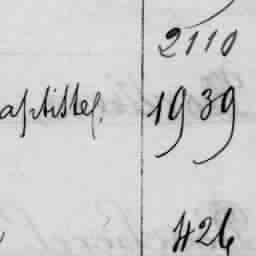 2110
aptistes. 1939
426